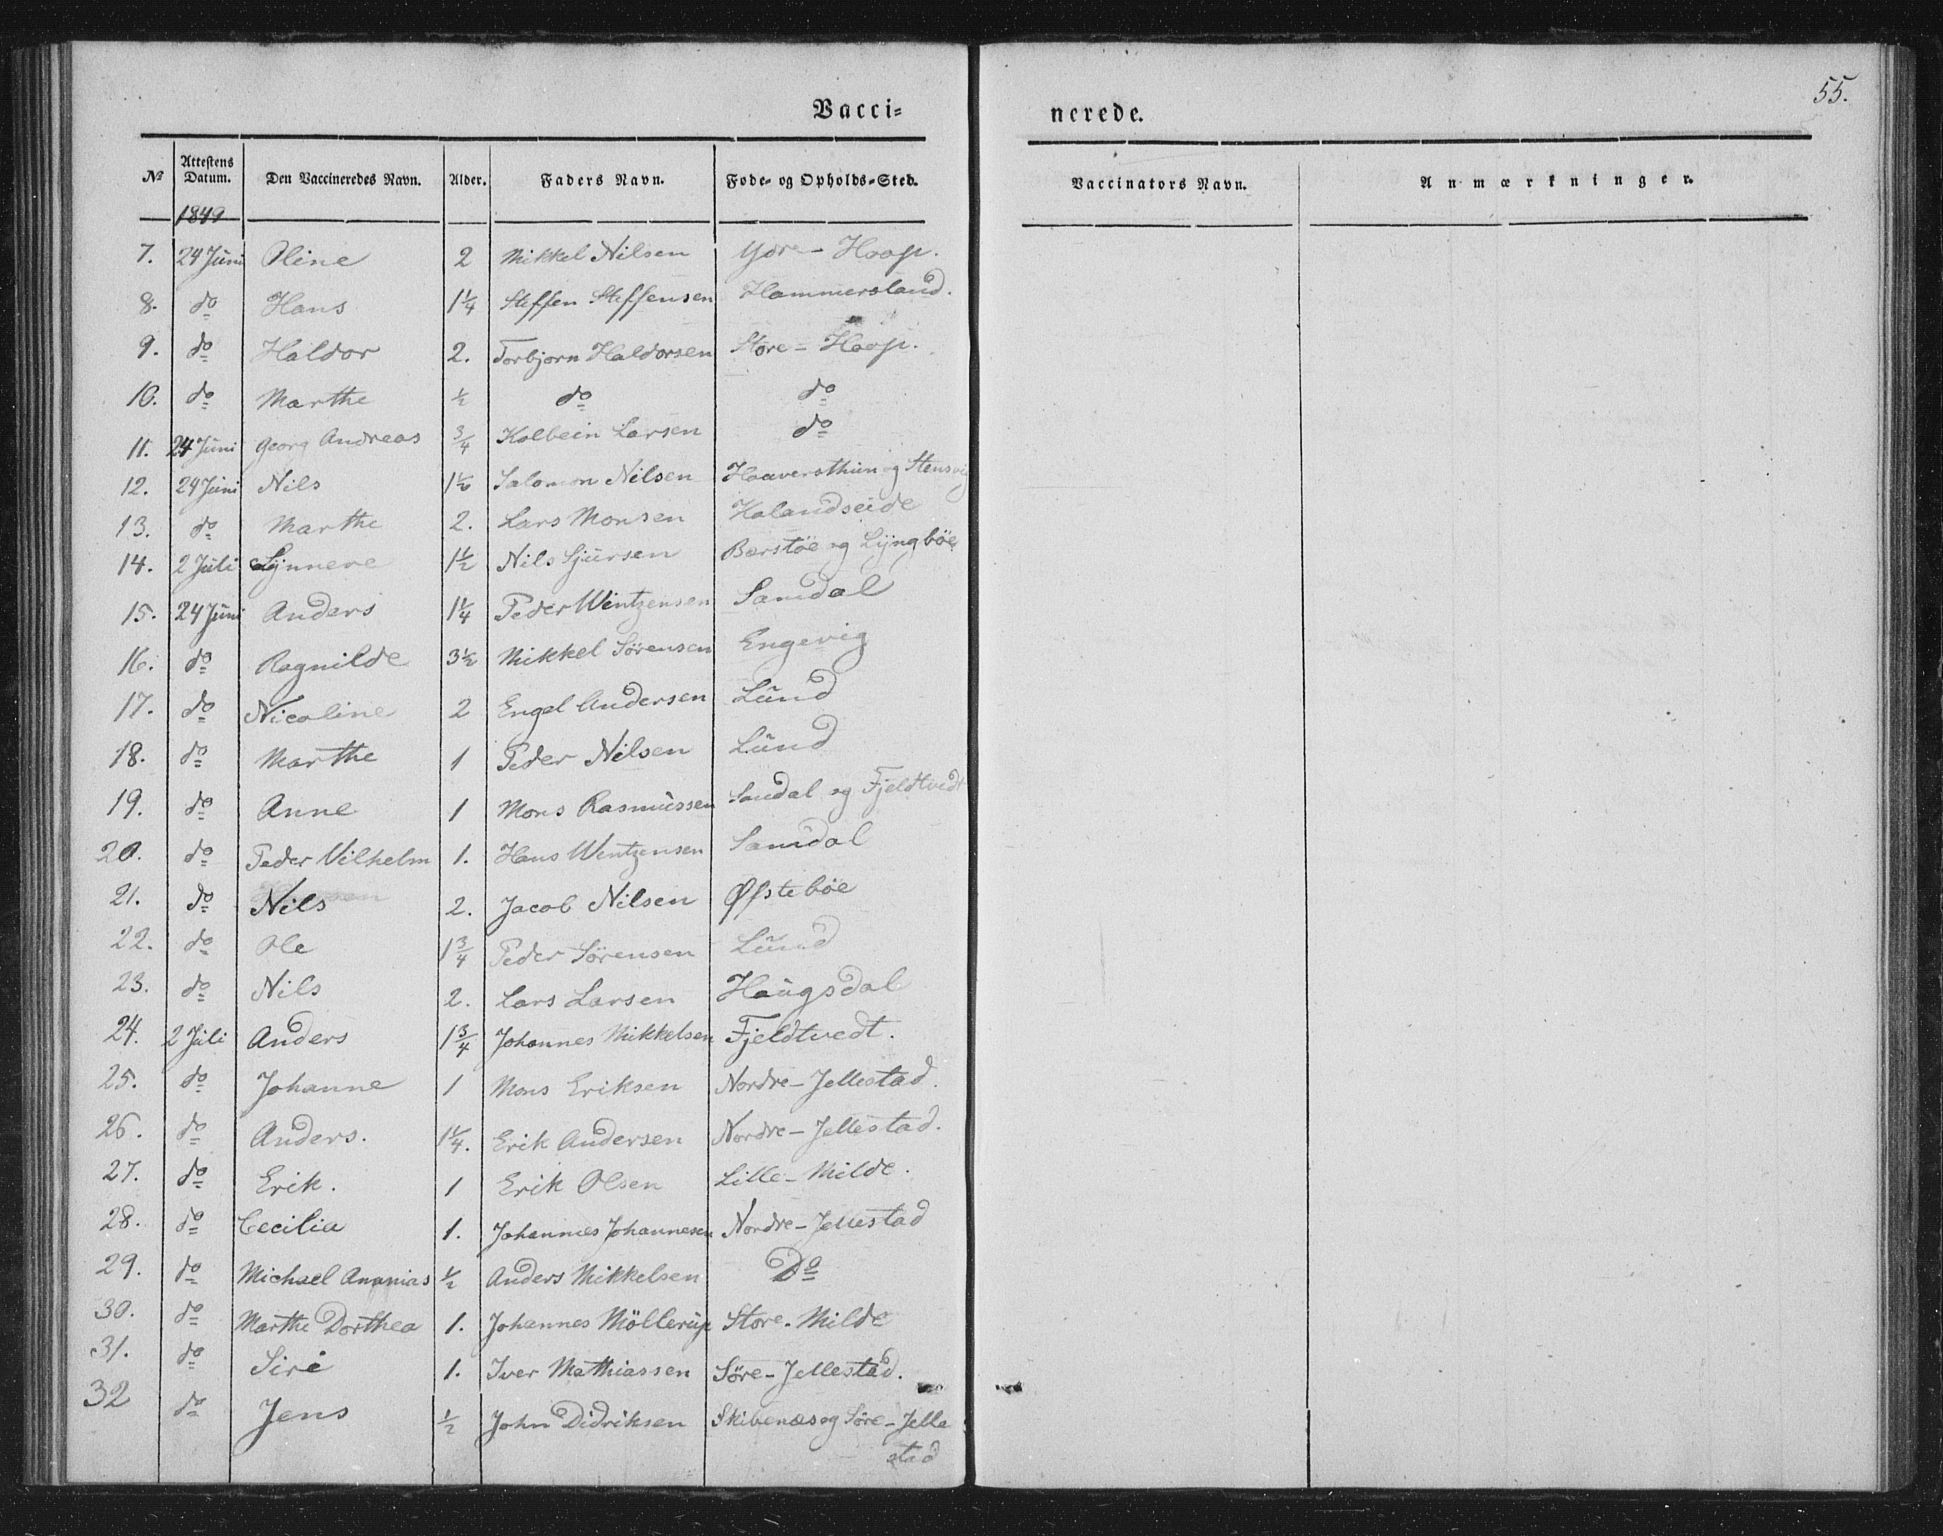 55.
Vacci=
nerede.
№ Attestens Datum. Den Vaccineredes Navn. Alder. Faders Navn. Føde- og Opholds-Sted. Vaccinators Navn. Anmærkninger.
1849
7. 24 Juni Oline 2 Mikkel Nilsen Ydre - Hoop.
8. do Hans 1 1/4 Steffen Steffensen Hammersland.
9. do Haldor 2. Torbjørn Haldorsen Store = Hoop.
10. do Marthe 1/2 do do
11. 24 Juni Georg Andreas 3/4 Kolbein Larsen do
12. 24 Juni Nils 1 1/2 Salomon Nilsen Haaversthun og Stensvig
13. do Marthe 2. Lars Monsen Halandseide
14. 2 Juli Synneve 1 1/2 Nils Sjursen Barstøe og Lyngbøe
15. 24 Juni Anders 1 1/4 Peder Wentzensen Samdal
16. do Ragnilde 3 1/2 Mikkel Sørensen Engevig
17. do Nicoline 2 Engel Andersen Lund
18. do Marthe 1 Peder Nilsen Lund
19. do Anne 1 Mons Rasmussen Samdal og Fjeldtvedt
20. do Peder Vilhelm 1. Hans Wentzensen Samdal
21. do Nils 2. Jacob Nilsen Øfstebøe
22. do Ole 1 3/4 Peder Sørensen Lund
23. do Nils 2. Lars Larsen Haugsdal
24. 2 Juli Anders 1 3/4 Johannes Mikkelsen Fjeldtvedt.
25. do Johanne 1 Mons Eriksen Nordre - Jellestad.
26. do Anders. 1 1/4. Erik Andersen Nordre - Jellestad.
27. do Erik. 1 Erik Olsen Lille - Milde.
28. do Cecilia 1. Johannes Johannesen Nordre - Jellestad
29. do Michael Ananias 1/2 Anders Mikkelsen Do
30. do Marthe Dorthea 1. Johannes Möllerup Store - Milde
31. do Siri 1. Iver Mathiassen Søre - Jellestad.
32 do Jens 1/2 John Didriksen Skibenæs og Søre - Jelle
stad